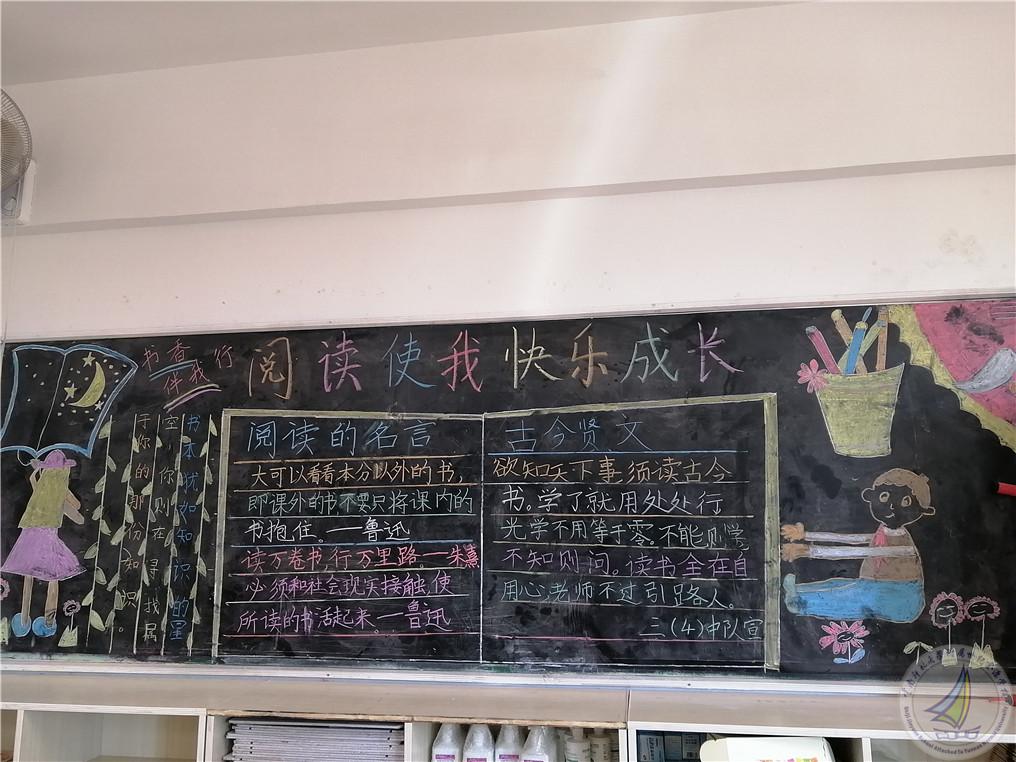 阅读使我快乐成长
书看行
伴我
书本犹如知识的星
空，你则在寻找属
于你的那份知识。
阅读的名言
大可以看看本分以外的书，
即课外的书不要只将课内的
书抱住。——鲁迅
读万卷书，行万里路。——朱熹
必须和社会现实接触，使
所读的书活起来。——鲁迅
古今贤文
欲知天下事，须读古今
书。学了就用处处行
光学不用等于零。不能则学，
不知则问。读书全在自
用心老师不过引路人。
三（4）中队宣